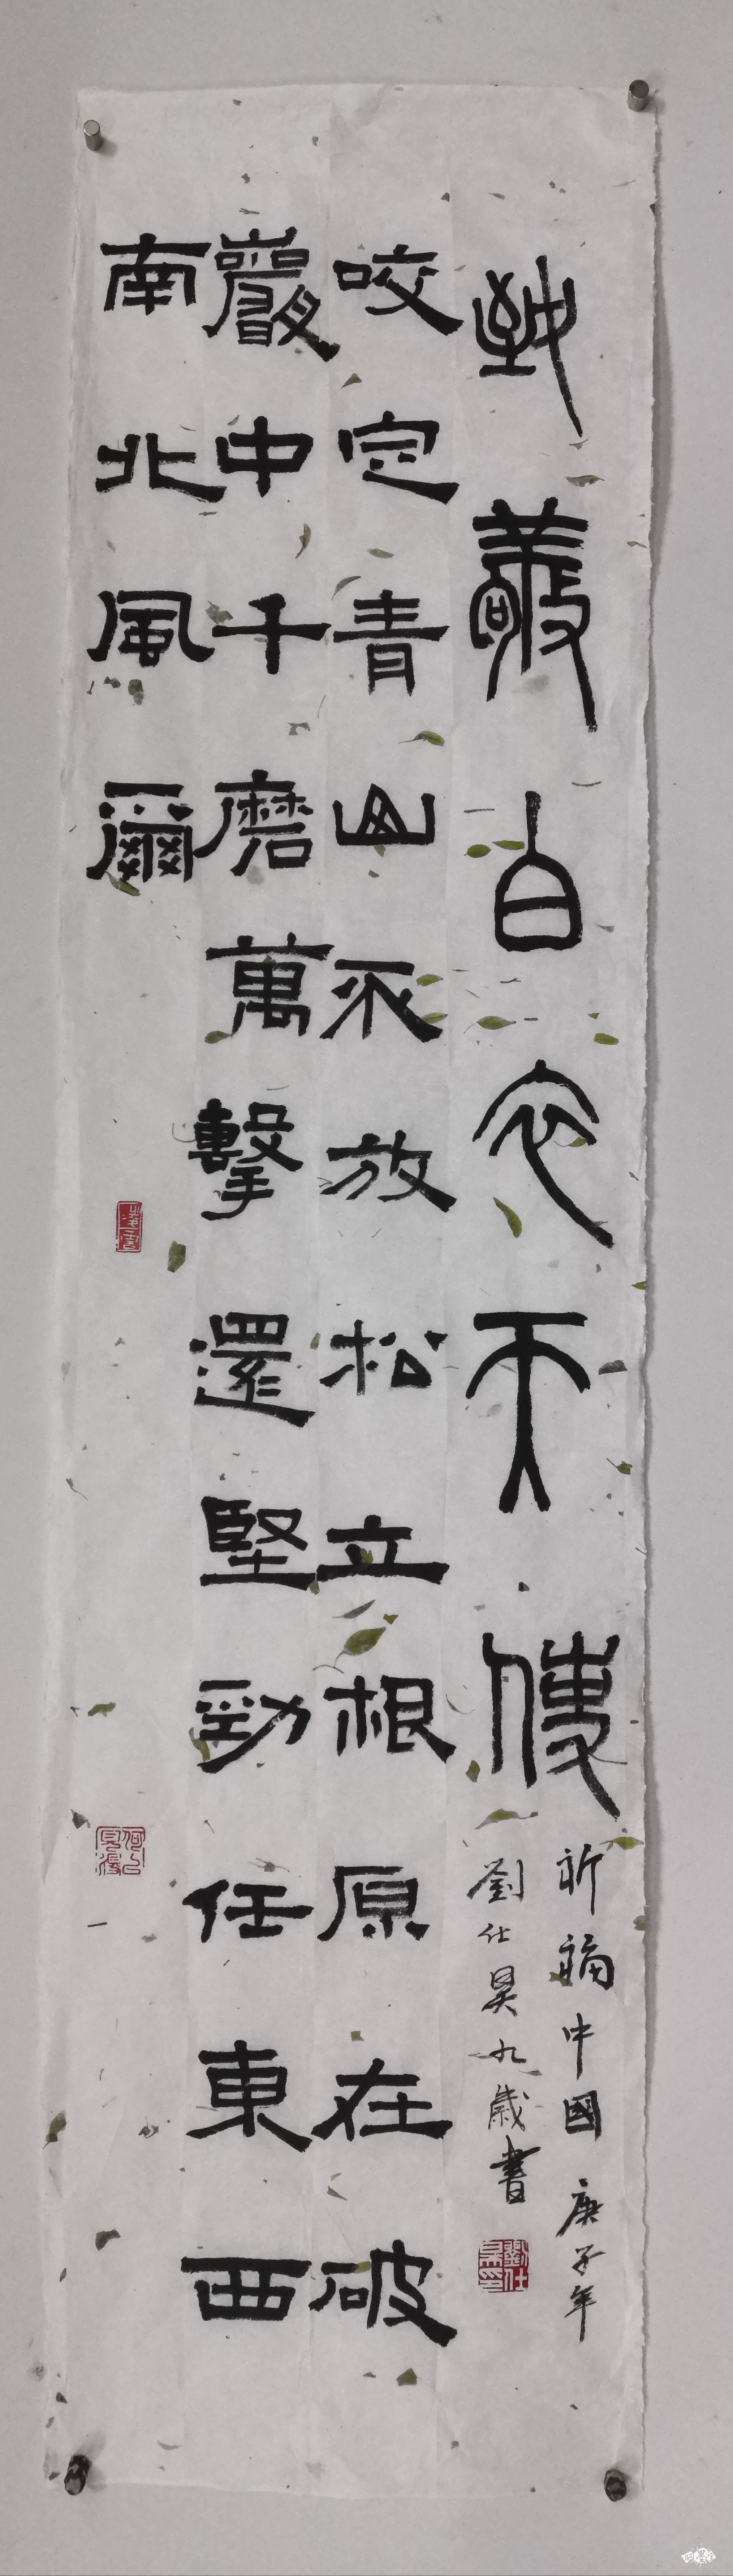 致敬白衣天使
祈福中國 庚子年
劉仕昊九歲書
劉仕昊印
咬定青山不放松立根原在破
巖中千磨萬擊還堅勁任東西
南北風爾